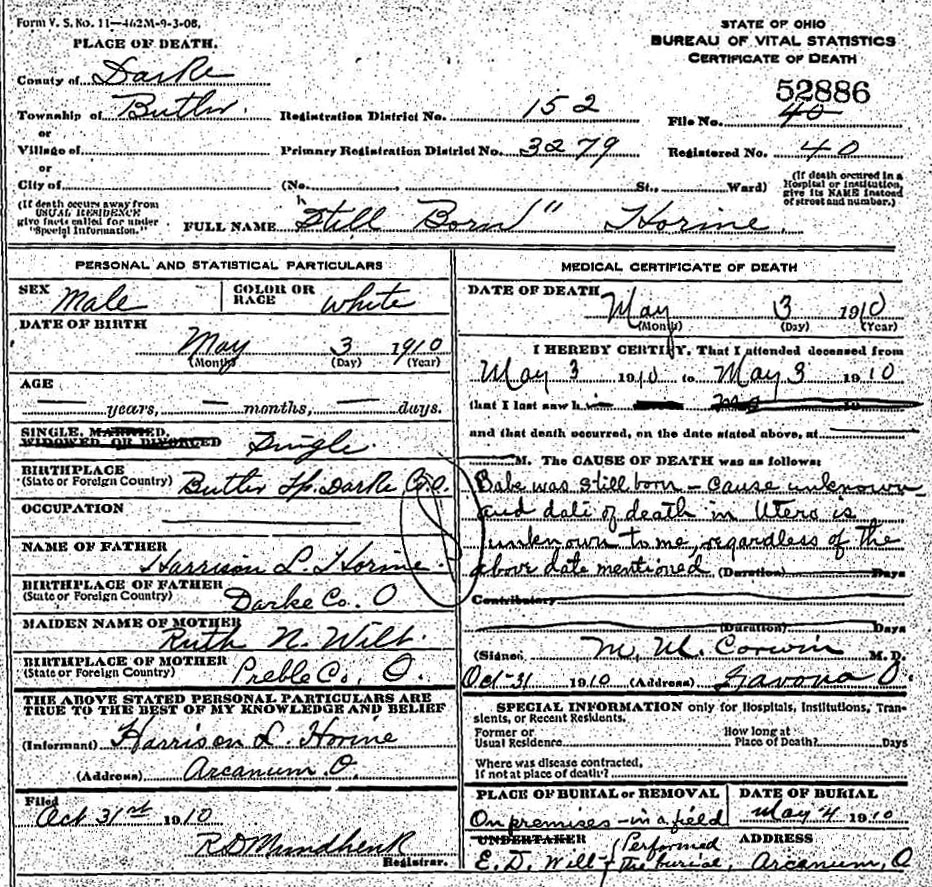 Form V. S. No. 11—462M-9-3-08.
PLACE OF DEATH.
STATE OF OHIO
BUREAU OF VITAL STATISTICS
CERTIFICATE OF DEATH
County of Darke
52886
Township of Butler. Registration District No. 152 File No. 40
or
Village of Primary Registration District No. 3279 Registered No. 40
or
City of (No. St., Ward) (If death occured in a Hospital or Institution, give its NAME instead of street and number.)
(If death occurs away from USUAL RESIDENCE give facts called for under "Special Information.")
FULL NAME "Still Born" Horine
PERSONAL AND STATISTICAL PARTICULARS
SEX Male COLOR OR RACE White
DATE OF BIRTH
May 3 1910
(Month) (Day) (Year)
AGE
— years, — months, — days.
SINGLE, MARRIED, WIDOWED OR DIVORCED Single.
BIRTHPLACE
(State or Foreign Country) Butler Tp. Darke Co. O.
OCCUPATION
NAME OF FATHER
Harrison L. Horine.
BIRTHPLACE OF FATHER
(State or Foreign Country) Darke Co. O
MAIDEN NAME OF MOTHER
Ruth N. Wilt.
BIRTHPLACE OF MOTHER
(State or Foreign Country) Preble Co, O.
THE ABOVE STATED PERSONAL PARTICULARS ARE
TRUE TO THE BEST OF MY KNOWLEDGE AND BELIEF
(Informant) Harrison L. Horine
(Address) Arcanum. O.
Filed
Oct 31st 1910
R D Mundhenk
Registrar.
MEDICAL CERTIFICATE OF DEATH
DATE OF DEATH
May 3 1910
(Month) (Day) (Year)
I HEREBY CERTIFY, That I attended deceased from
May 3 1910 to May 3 1910
that I last saw h
and that death occurred, on the date stated above, at
M. The CAUSE OF DEATH was as follows:
Babe was still born - Cause unknown
and date of death in Utero is
unknown to me, regardless of the
above date mentioned (Duration) Days
Contributory
(Duration) Days
(Signed) M. W. Corwin M.D.
Oct-31 1910 (Address) Savona O.
SPECIAL INFORMATION only for Hospitals, Institutions, Transients, or Recent Residents.
Former or Usual Residence How long at Place of Death? Days
Where was disease contracted,
If not at place of death?
PLACE OF BURIAL or REMOVAL DATE OF BURIAL
On premises - in a field May 4 1910
UNDERTAKER (Performed ADDRESS
E. D. Wilt the burial, Arcanum, O